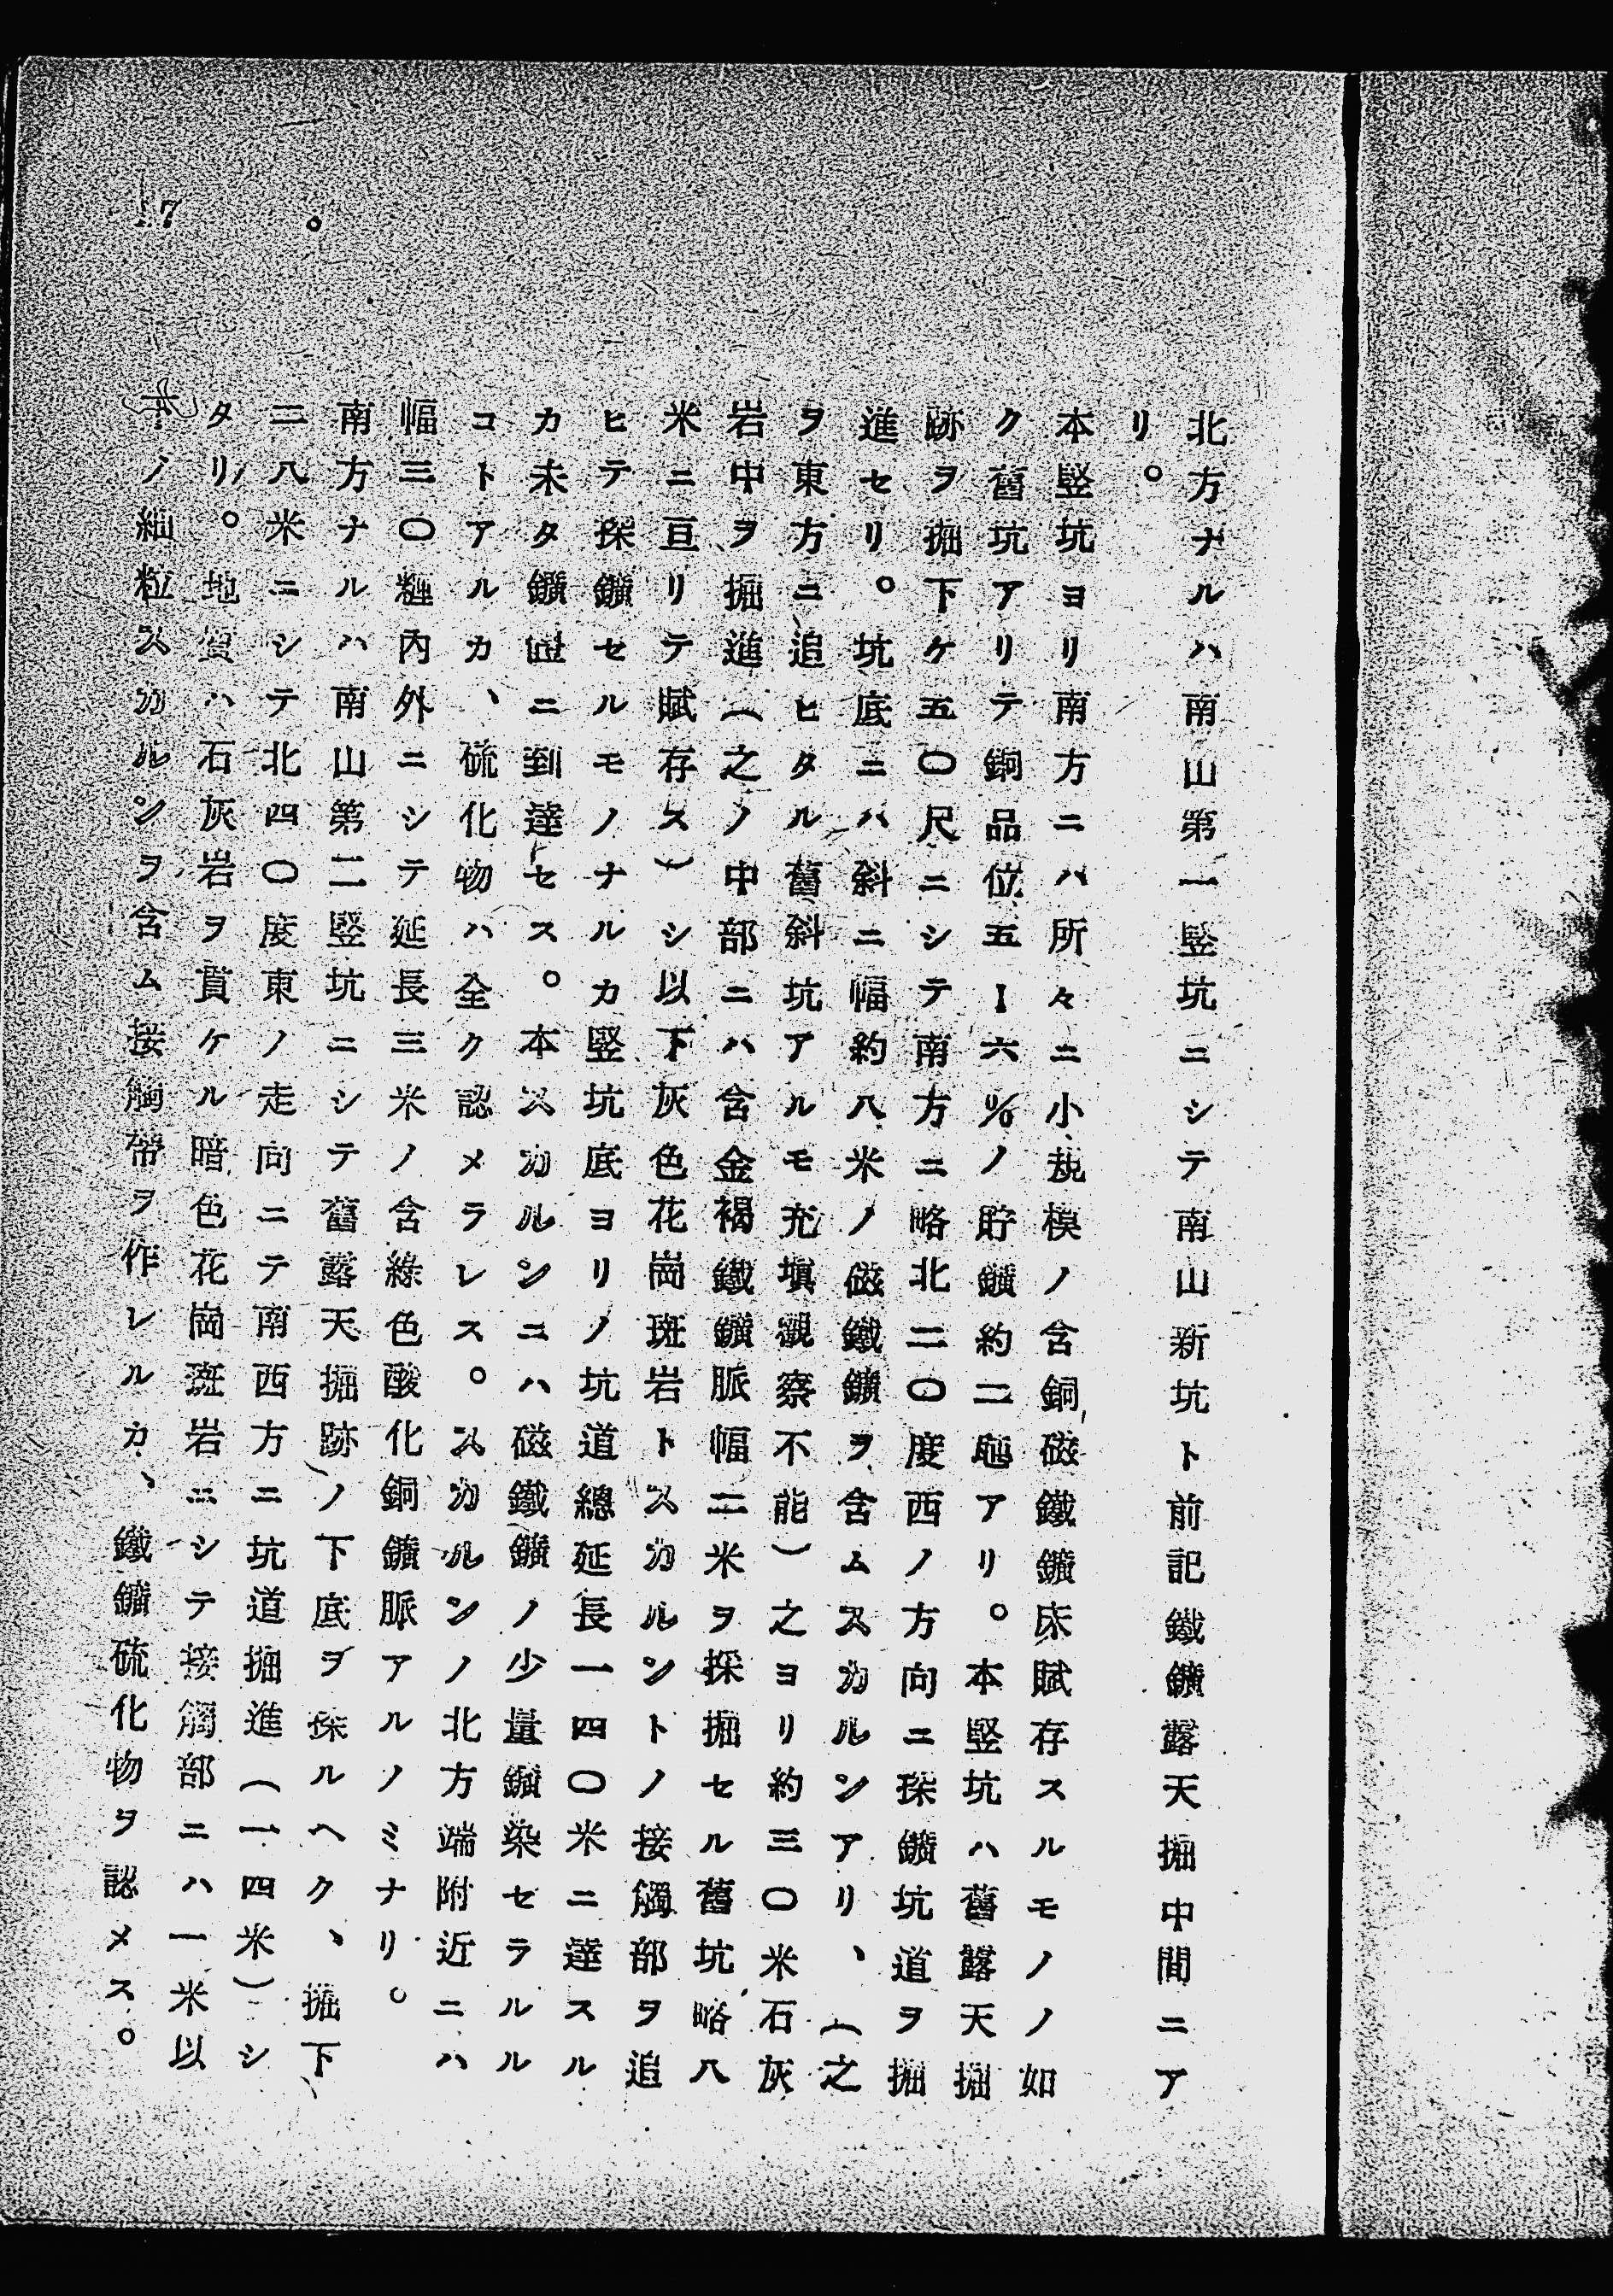 北方ナルハ南山第一竪坑ニシテ南山新坑ト前記鐵鑛露天掘中間ニア
リ。
本竪坑ヨリ南方ニハ所々ニ小規模ノ含銅磁鐵鑛床賦存スルモノノ如
ク舊坑アリテ銅品位五ー六%ノ貯鑛約二瓲アリ。本竪坑ハ舊露天掘
跡ヲ掘下ケ五〇尺ニシテ南方ニ略北二〇度西ノ方向ニ探鑛坑道ヲ掘
進セリ。坑底ニハ斜ニ幅約八米ノ磁鐵鑛ヲ含ムスカルンアリ、(之
ヲ東方ニ追ヒタル舊斜坑アルモ充塡觀察不能)之ヨリ約三〇米石灰
岩中ヲ掘進(之ノ中部ニハ含金褐鐵鑛脈幅二米ヲ採掘セル舊坑略八
米ニ亘リテ賦存ス)シ以下灰色花崗斑岩トスカルントノ接觸部ヲ追
ヒテ探鑛セルモノナルカ竪坑底ヨリノ坑道總延長一四〇米ニ達スル
カ未タ鑛畄ニ到達セス。本スカルンニハ磁鐵鑛ノ少量鑛染セラルル
コトアルカ、硫化物ハ全ク認メラレス。スカルンノ北方端附近ニハ
幅三〇糎内外ニシテ延長三米ノ含綠色酸化銅鑛脈アルノミナリ。
南方ナルハ南山第二竪坑ニシテ舊露天掘跡ノ下底ヲ探ルヘク、掘下
二八米ニシテ北四〇度東ノ走向ニテ南西方ニ坑道掘進(一四米)シ
タリ。地質ハ石灰岩ヲ貫ケル暗色花崗斑岩ニシテ接觸部ニハ一米以
ノ細粒スカルンヲ含ム接觸帶ヲ作レルカ、鐵鑛硫化物ヲ認メス。
17